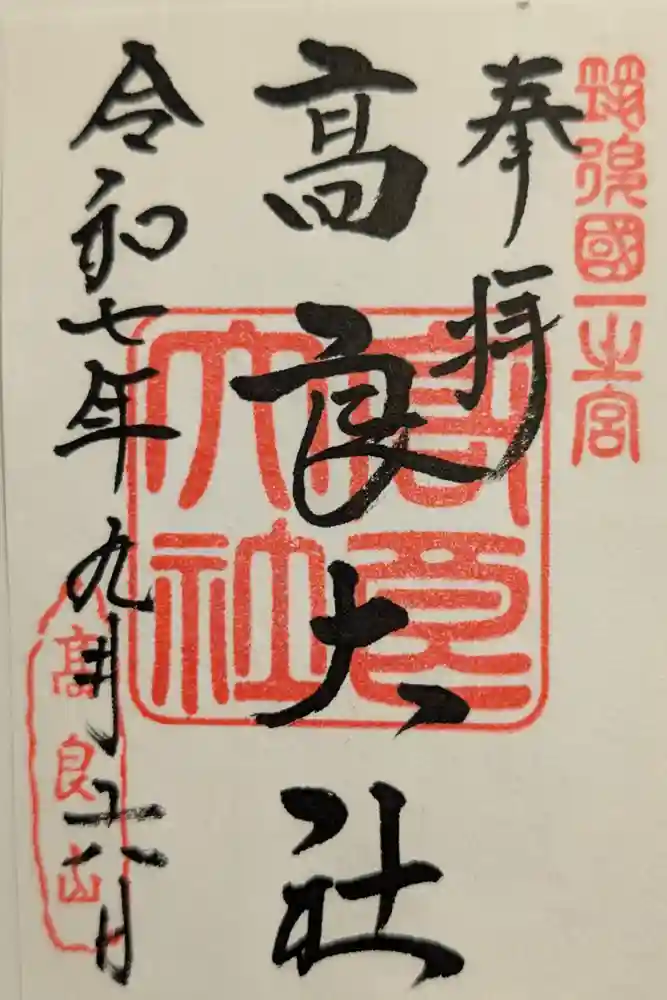 筑後國一之宮
奉拝
髙良大社
高良
大社
令和七年九月十八日
高良山